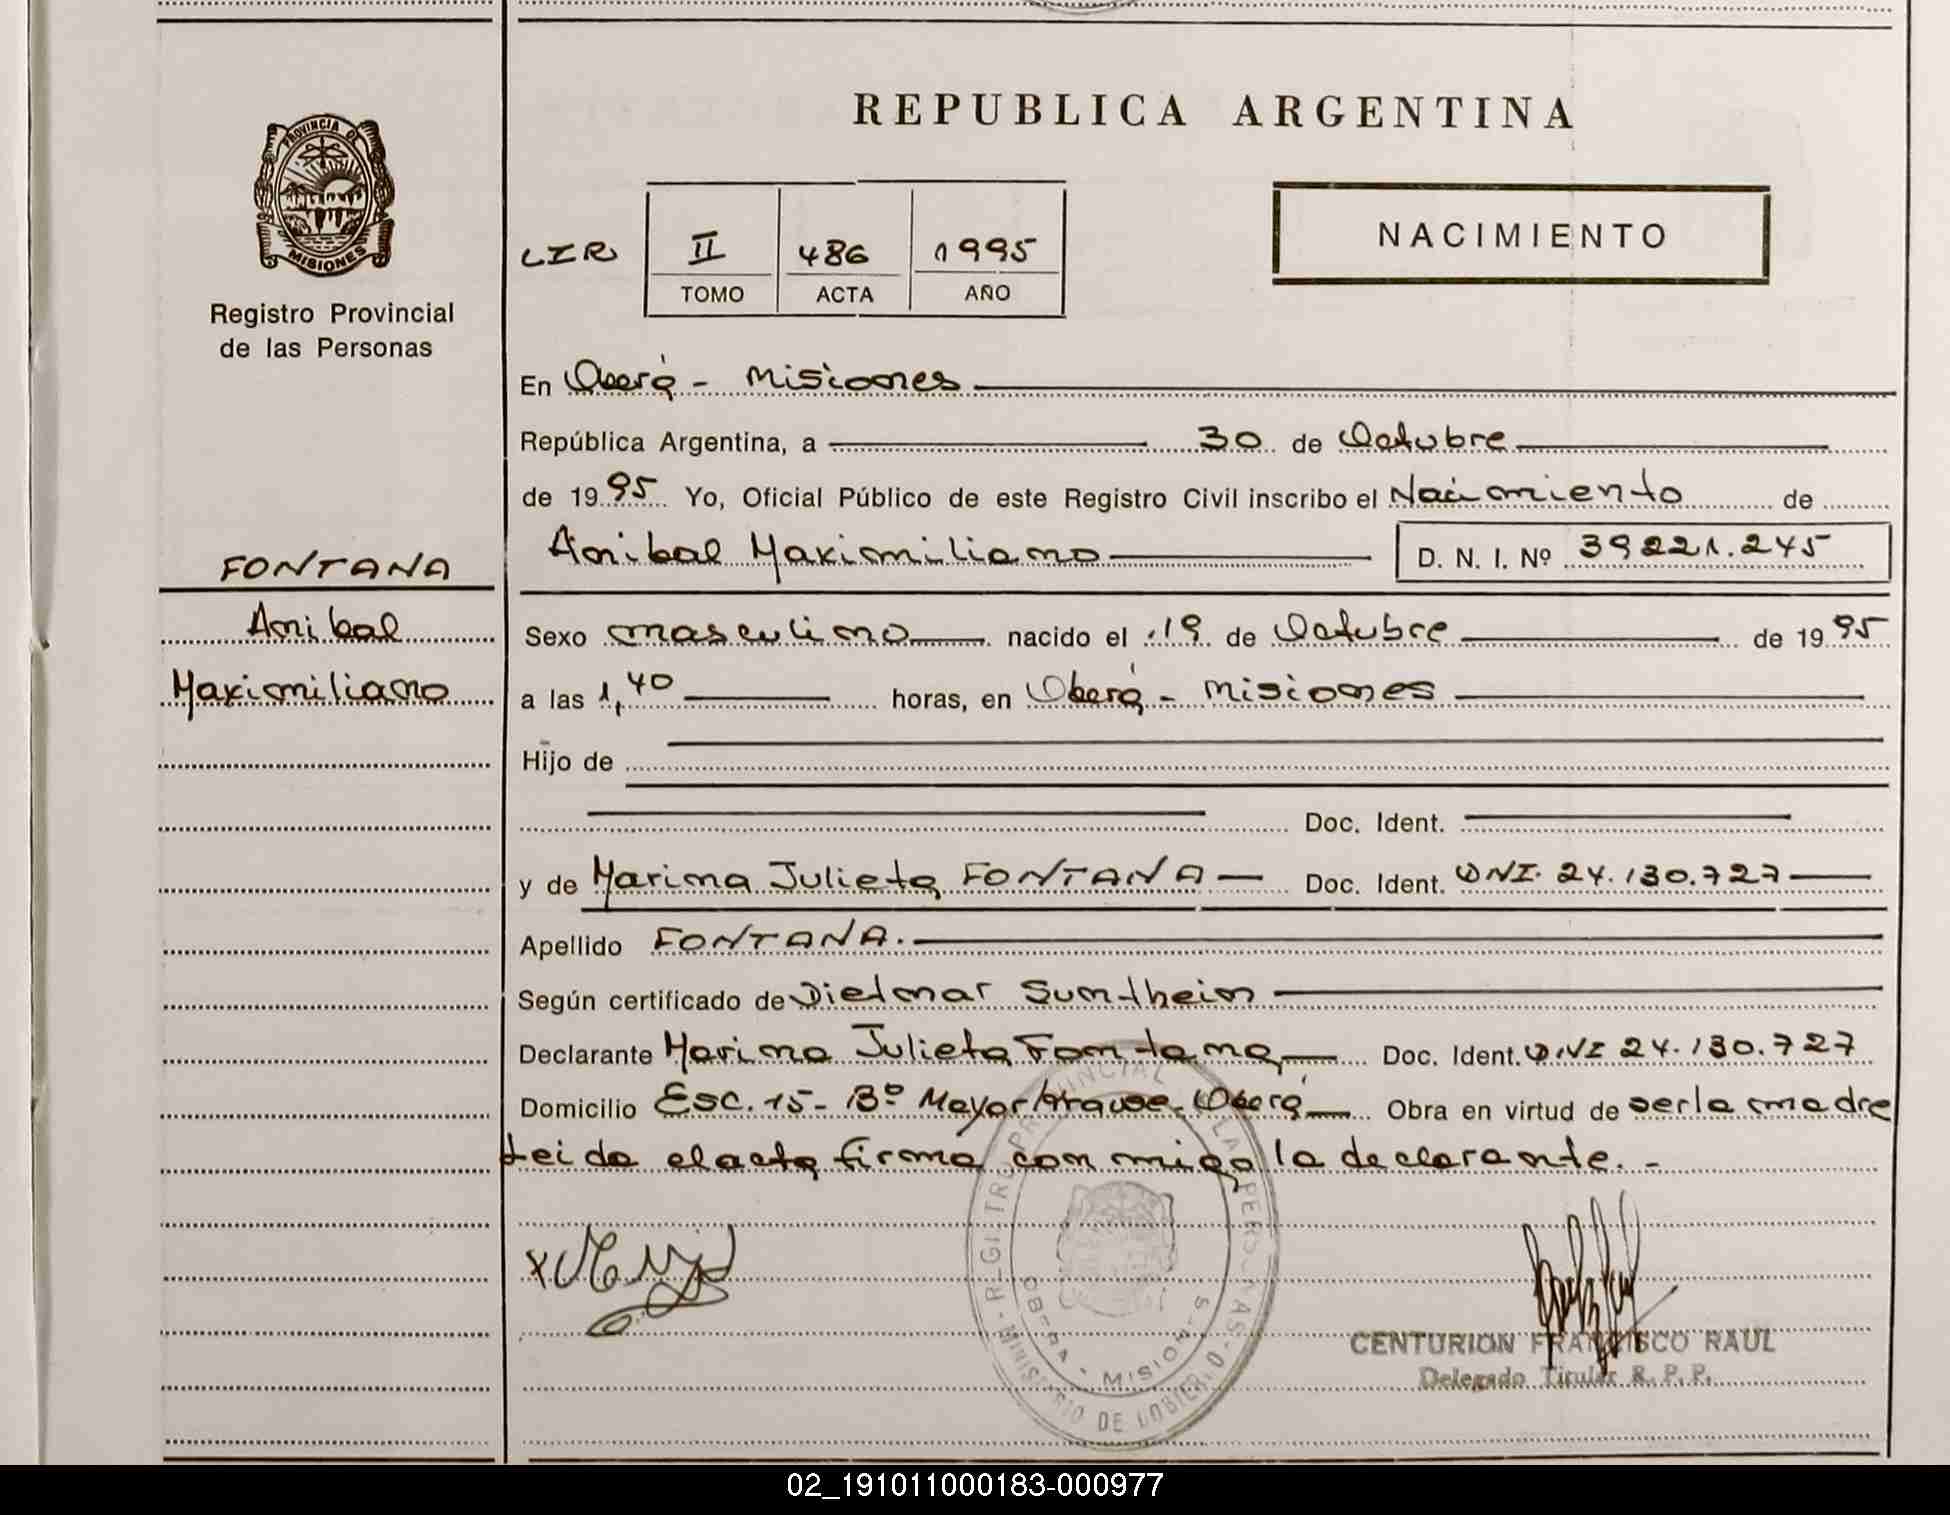 REPUBLICA ARGENTINA
PROVINCIA DE
MISIONES
Registro Provincial
de las Personas
LIR II 486 1995
TOMO ACTA AÑO
NACIMIENTO
En Oberá - Misiones
República Argentina, a 30 de Octubre
de 1995 Yo, Oficial Público de este Registro Civil inscribo el Nacimiento de
Anibal Maximiliano D. N. I. Nº 39221.245
FONTANA
Anibal
Maximiliano
Sexo masculino nacido el 19 de Octubre de 1995
a las 1,40 horas, en Oberá - Misiones
Hijo de
Doc. Ident.
y de Marina Julieta FONTANA Doc. Ident. DNI. 24.130.727
Apellido FONTANA.
Según certificado de Dietmar Sumthein
Declarante Marina Julieta Fontana Doc. Ident. DNI 24.130.727
Domicilio Esc. 15 - Bº Mayor Krause - Oberá Obra en virtud de ser la madre
Leida el acta firma con migo la declarante. -
MINISTERIO DE GOBIERNO - REGISTRO PROVINCIAL LAS PERSONAS
OBERA - MISIONES
CENTURION FRANCISCO RAUL
Delegado Titular R. P. P.
02_191011000183-000977